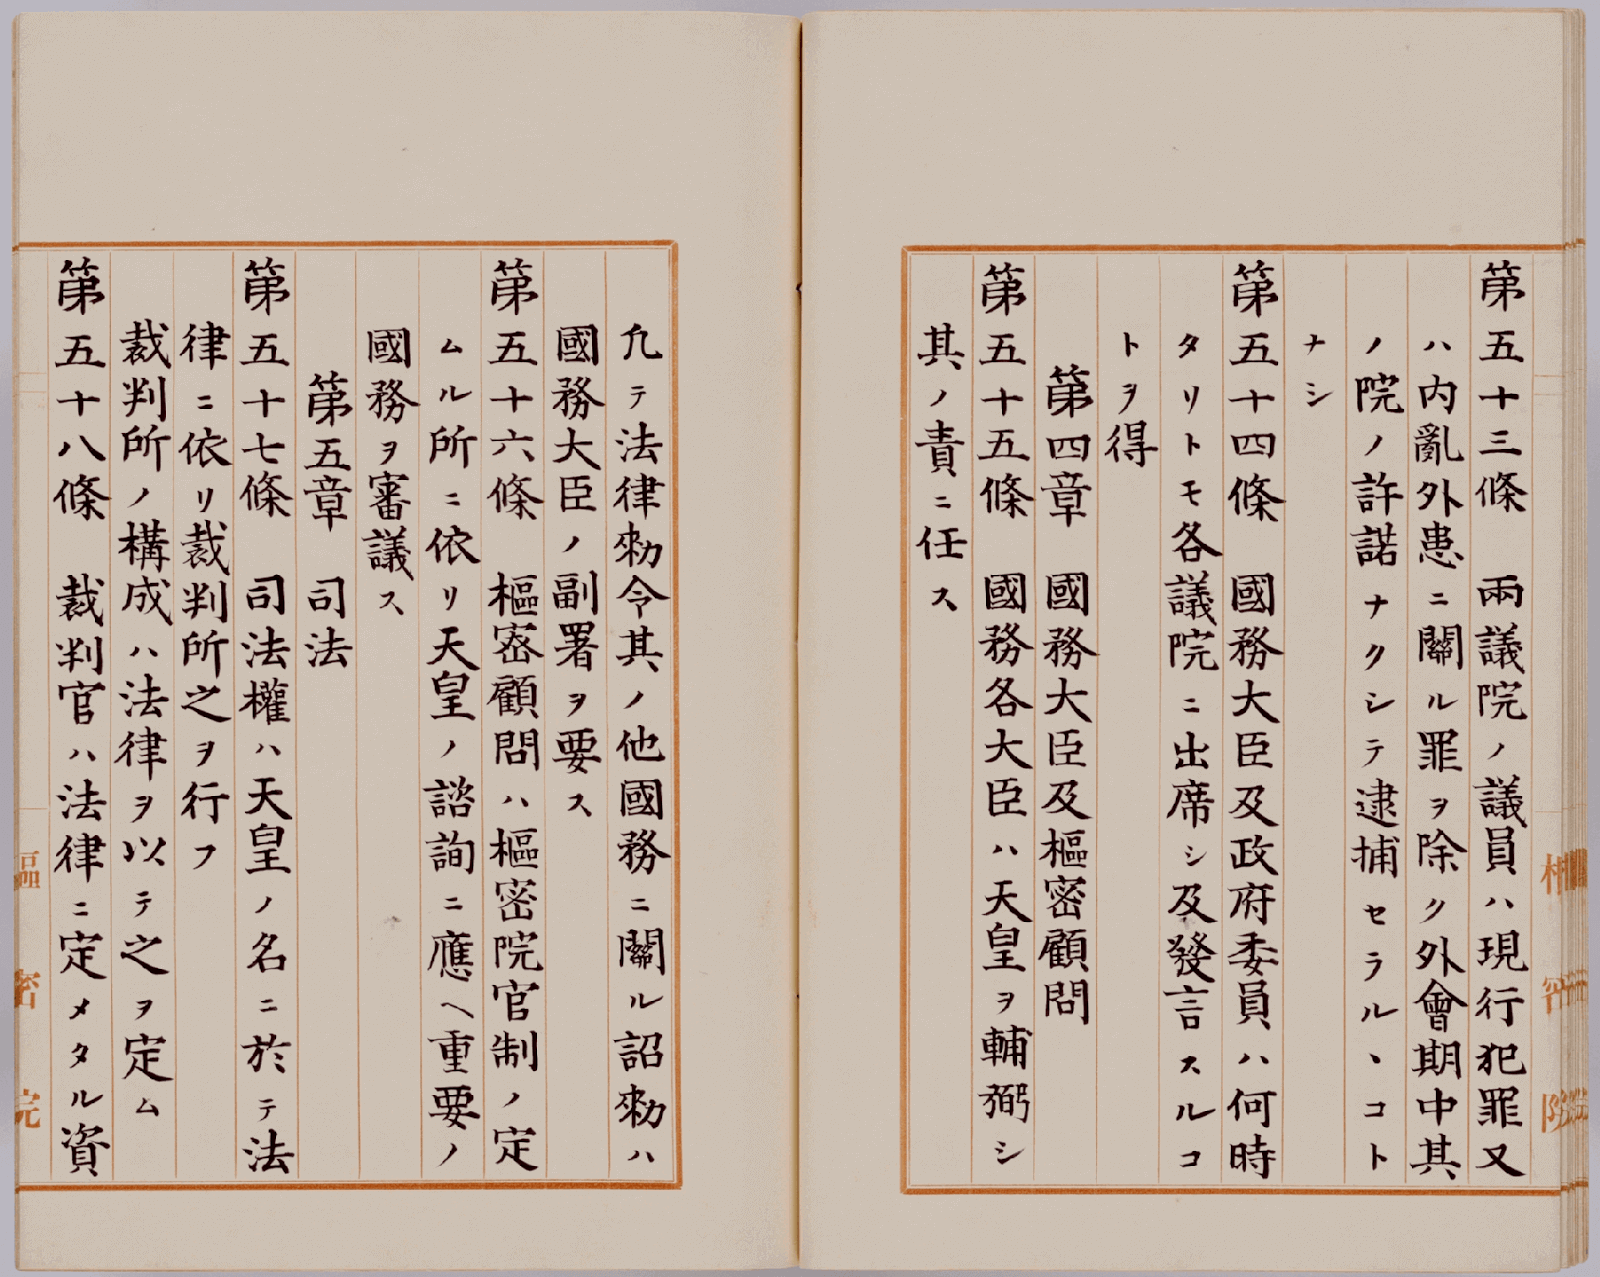 第五十三條　兩議院ノ議員ハ現行犯罪又
ハ內亂外患ニ關ル罪ヲ除ク外會期中其
ノ院ノ許諾ナクシテ逮捕セラルヽコト
ナシ
第五十四條　國務大臣及政府委員ハ何時
タリトモ各議院ニ出席シ及發言スルコ
トヲ得
第四章　國務大臣及樞密顧問
第五十五條　國務各大臣ハ天皇ヲ輔弼シ
其ノ責ニ任ス
凡テ法律勅令其ノ他國務ニ關ル詔勅ハ
國務大臣ノ副署ヲ要ス
第五十六條　樞密顧問ハ樞密院官制ノ定
ムル所ニ依リ天皇ノ諮詢ニ應ヘ重要ノ
國務ヲ審議ス
第五章　司法
第五十七條　司法權ハ天皇ノ名ニ於テ法
律ニ依リ裁判所之ヲ行フ
裁判所ノ構成ハ法律ヲ以テ之ヲ定ム
第五十八條　裁判官ハ法律ニ定メタル資
樞密院